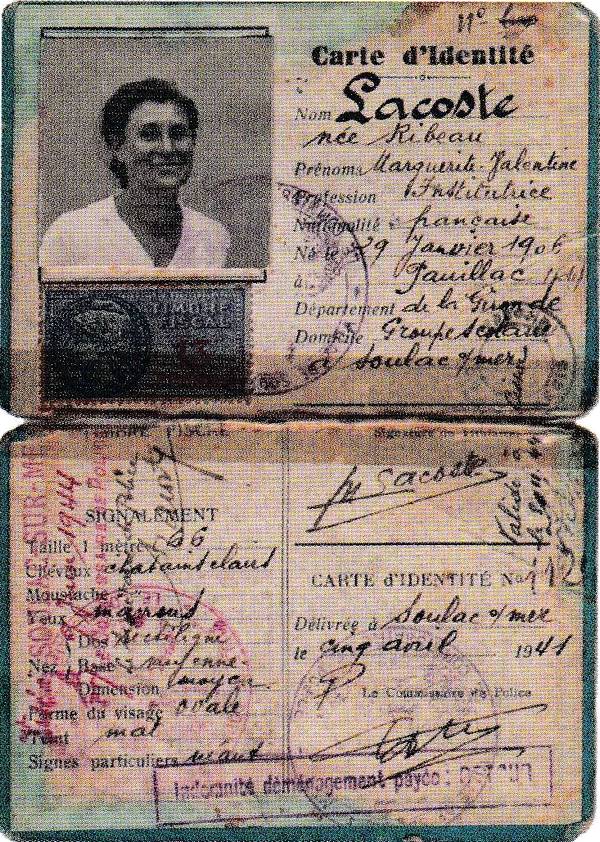 N°
Carte d'Identité
Nom Lacoste
née Ribeau
Prénoms Marguerite-Valentine
Profession Institutrice
Nationalité française
Né le 29 Janvier 1906
à Pauillac
Département de la Gironde
Domicile Groupe Scolaire
à Soulac s/mer
FISCAL
Signature du Titulaire
M Lacoste
SIGNALEMENT
Taille 1 mètre 66
Cheveux chatains clairs
Moustache
Yeux marrons
Nez Dos rectiligne
Base moyenne
Dimension moyen
Forme du visage ovale
Teint mat
Signes particuliers néant
1944
CARTE d'IDENTITÉ N°
Délivrée à Soulac s/mer
le cinq avril 1941
Le Commissaire de Police
Indemnité déménagement payée : RETOUR